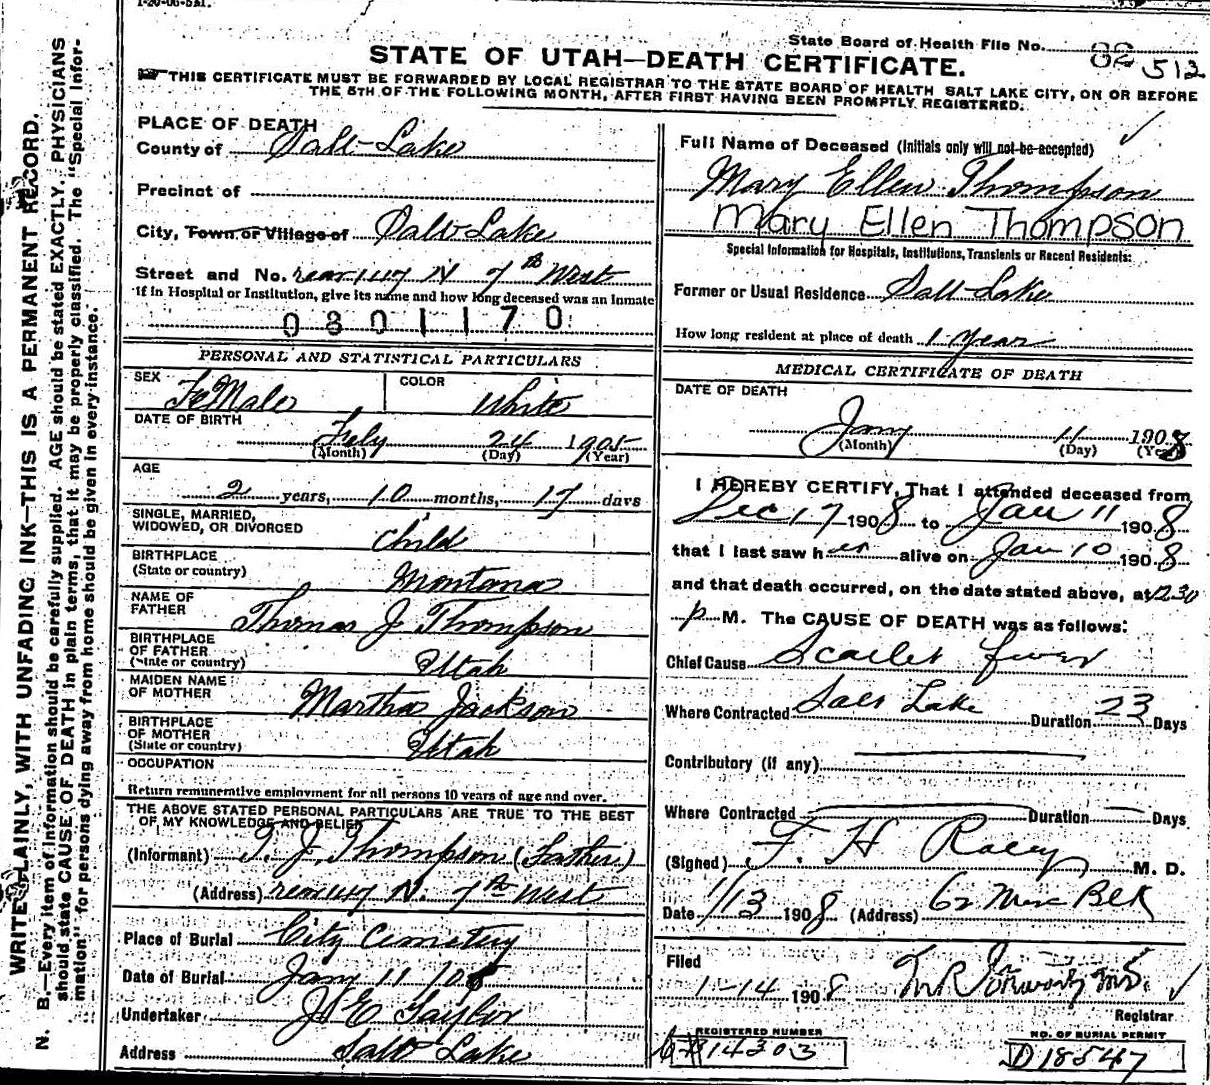 1-20-06-5M.
State Board of Health File No. 82 512
STATE OF UTAH—DEATH CERTIFICATE.
THIS CERTIFICATE MUST BE FORWARDED BY LOCAL REGISTRAR TO THE STATE BOARD OF HEALTH SALT LAKE CITY, ON OR BEFORE
THE 5TH OF THE FOLLOWING MONTH, AFTER FIRST HAVING BEEN PROMPTLY REGISTERED.
WRITE PLAINLY, WITH UNFADING INK—THIS IS A PERMANENT RECORD.
N. B.—Every item of information should be carefully supplied. AGE should be stated EXACTLY. PHYSICIANS
should state CAUSE OF DEATH in plain terms, that it may be properly classified. The "Special Infor-
mation" for persons dying away from home should be given in every instance.
PLACE OF DEATH
County of Salt Lake
Precinct of
City, Town or Village of Salt Lake
Street and No. rear N 7th West
If in Hospital or Institution, give its name and how long deceased was an inmate
0801170
PERSONAL AND STATISTICAL PARTICULARS
SEX FeMale COLOR White
DATE OF BIRTH
July 24 1905
(Month) (Day) (Year)
AGE
2 years, 10 months, 17 days
SINGLE, MARRIED,
WIDOWED, OR DIVORCED child
BIRTHPLACE
(State or country) Montana
NAME OF
FATHER Thomas J Thompson
BIRTHPLACE
OF FATHER
(State or country) Utah
MAIDEN NAME
OF MOTHER Martha Jackson
BIRTHPLACE
OF MOTHER
(State or country) Utah
OCCUPATION
Return remunerative employment for all persons 10 years of age and over.
THE ABOVE STATED PERSONAL PARTICULARS ARE TRUE TO THE BEST
OF MY KNOWLEDGE AND BELIEF
(Informant) T. J. Thompson (Father)
(Address) rear N. 7th West
Place of Burial City Cemetery
Date of Burial Jany 11 / 08
Undertaker J E Taylor
Address Salt Lake
Full Name of Deceased (Initials only will not be accepted)
Mary Ellen Thompson
Mary Ellen Thompson
Special Information for Hospitals, Institutions, Transients or Recent Residents:
Former or Usual Residence Salt Lake
How long resident at place of death 1 Year
MEDICAL CERTIFICATE OF DEATH
DATE OF DEATH
Jany 11 1908
(Month) (Day) (Year)
I HEREBY CERTIFY, That I attended deceased from
Dec 17 1908 to Jan 11 1908
that I last saw her alive on Jan 10 1908
and that death occurred, on the date stated above, at 12 30
p M. The CAUSE OF DEATH was as follows:
Chief Cause Scarlet fever
Where Contracted Salt Lake Duration 23 Days
Contributory (if any)
Where Contracted Duration Days
(Signed) F. H. Racey M. D.
Date 1/13 1908 (Address) 62 Blk
Filed
1-14 1908
Registrar
REGISTERED NUMBER
14303
NO. OF BURIAL PERMIT
D 18547